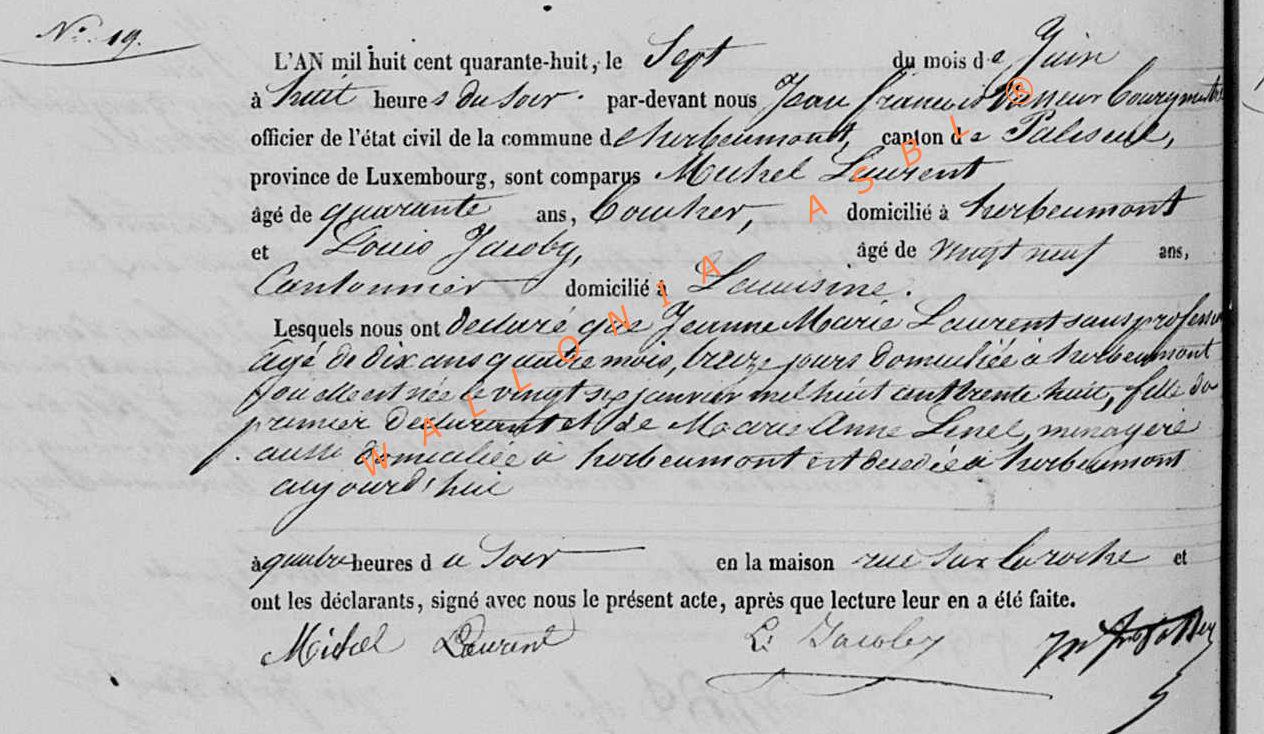 No. 19.
L'AN mil huit cent quarante-huit, le Sept du mois de Juin
à huit heures du Soir. par-devant nous Jean françois
officier de l'état civil de la commune de herbeumont, canton de Paliseul,
province de Luxembourg, sont comparus Michel Laurent
âgé de quarante ans, domicilié à herbeumont
et Louis Jacoby, âgé de vingt neuf ans,
Cantonnier domicilié à Lacuisine.
Lesquels nous ont declaré que Jeanne Marie Laurent sans profession
agé de dix ans quatre mois, treize jours domiciliée à herbeumont
d'ou elle est née le vingt six janvier mil huit cent trente huit, fille du
premier declarant et de Marie Anne menagère
aussi domiciliée à herbeumont est decedée a herbeumont
aujourd'hui
à quatre heures du Soir en la maison rue sur la roche et
ont les déclarants, signé avec nous le présent acte, après que lecture leur en a été faite.
Michel Laurent L. Jacoby
WALLONIA ASBL ®